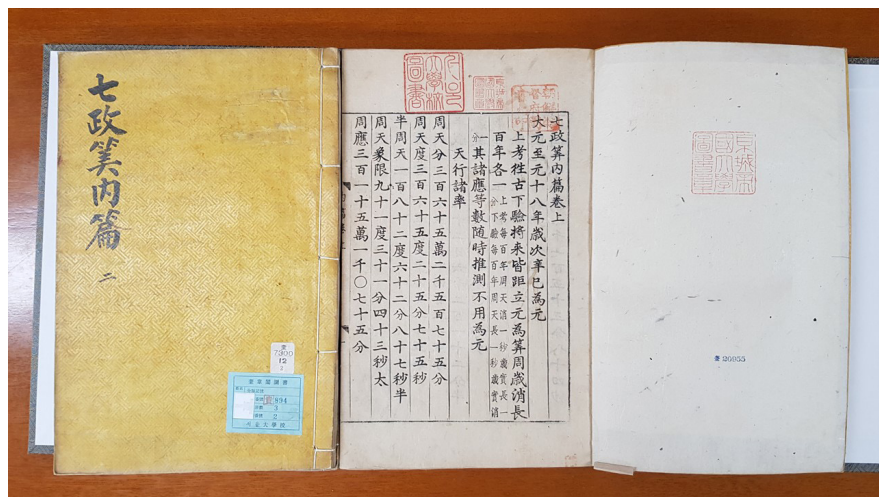 七政筭内篇
二
奎
7300
12
2
奎章閣圖書
894
3
2
七政筭内篇卷上
大元至元十八年歲次辛巳為元
上考徃古下驗將来皆距立元為筭周歲消長
百年各一上考每百年周天消一秒歲實長一
分下驗每百年周天長一秒歲實消
一分其諸應等數随時推測不用為元
天行諸率
周天分三百六十五萬二千五百七十五分
周天度三百六十五度二十五分七十五秒
半周天一百八十二度六十二分八十七秒半
周天象限九十一度三十一分四十三秒太
周應三百一十五萬一千〇七十五分
京城帝
國大學
圖書章
奎 20955